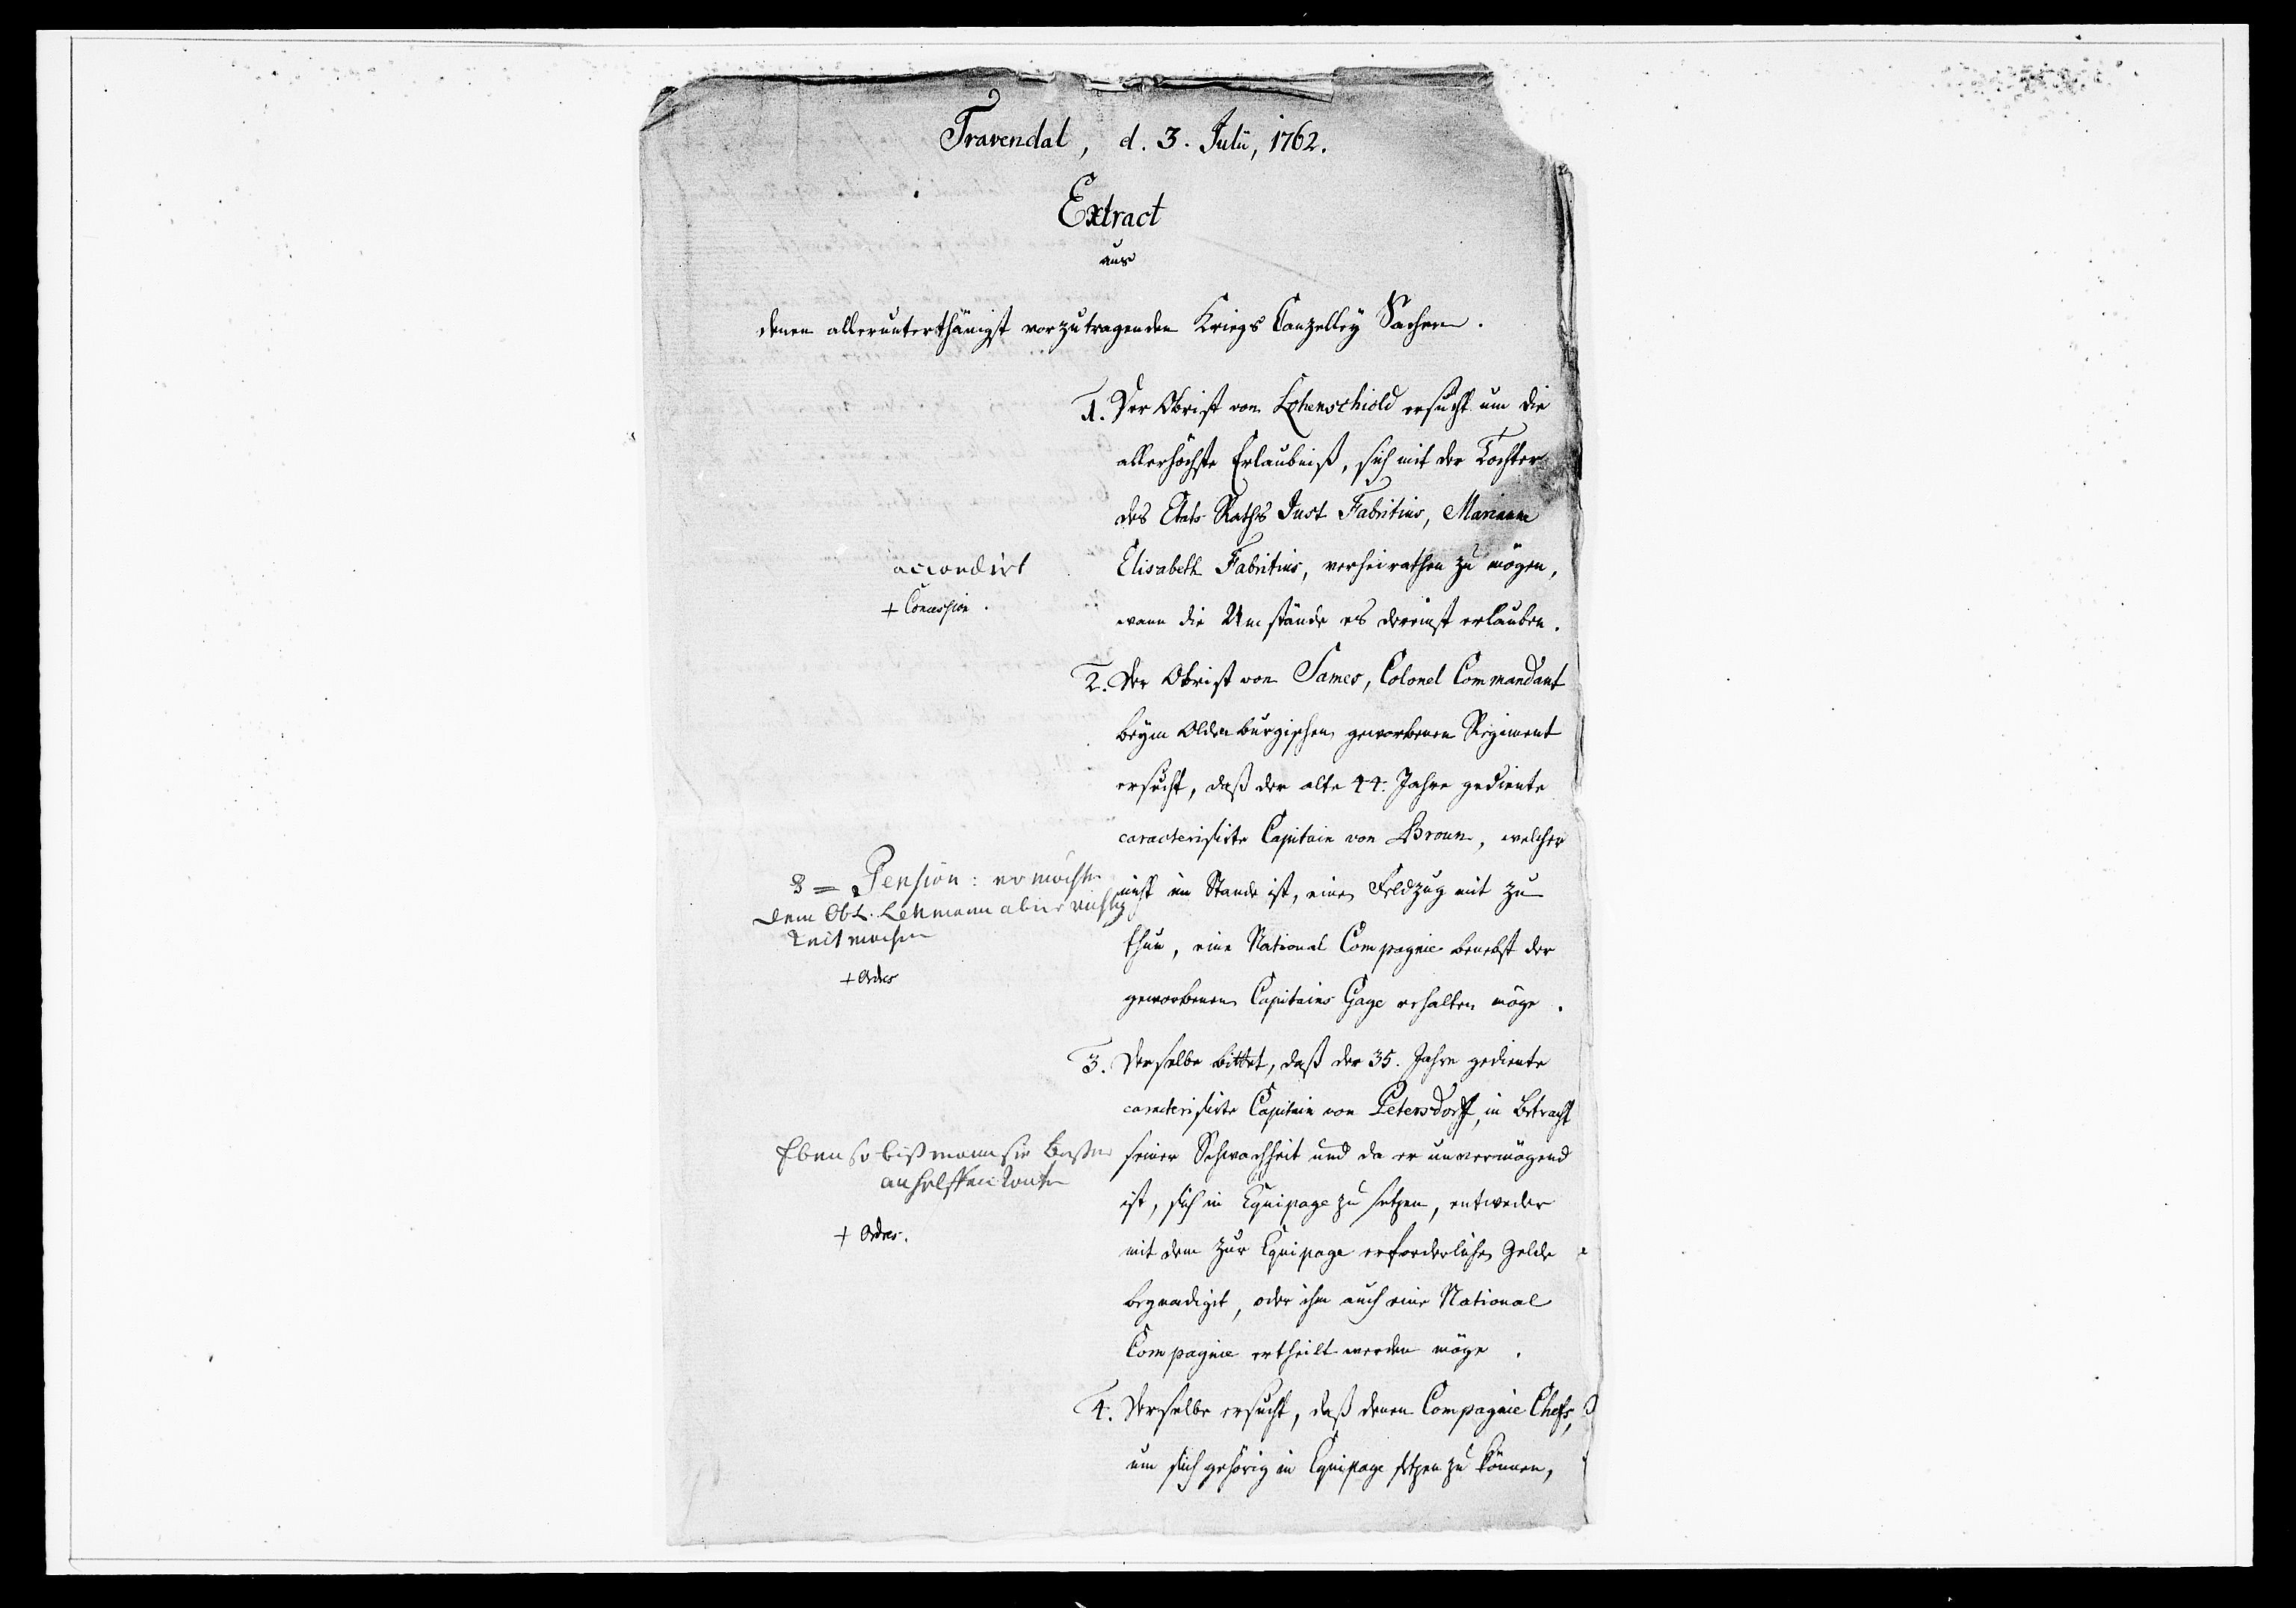 Travendal, d. 3. Julii, 1762.
Extract
aus
denen allerunterthänigst vorzutragenden Kriegs Canzelley Sachen.
1. Der Obrist von Lohenschiold ersucht um die
allerhöchste Erlaubniß, sich mit der Tochter
des Etats Raths Just Fabritius, Mariane
Elisabeth Fabritius, verheirathen zu mögen,
wann die Umstände es dereinst erlauben.
accordirt
+ Concession.
2. Der Obrist von Sames, Colonel Commandant
beym Oldenburgischen geworbenen Regiment
ersucht, daß der alte 44. Jahre gediente
caracterisirte Capitain von Broun, welcher
nicht im Stande ist, einen Feldzug mit zu
thun, eine National Compagnie benebst der
geworbenen Capitains Gage erhalten möge.
Pension: er möchte
dem Obt. Lehmann
+ Ordres
3. Derselbe bittet, daß der 35. Jahre gediente
caracterisirte Capitain von Petersdorff, in Betracht
seiner Schwachheit und da er unvermögend
ist, sich in Equipage zu setzen, entweder
mit dem zur Equipage erforderlichen Gelde
begnadiget, oder ihm auch eine National
Compagnie ertheilt werden möge.
Eben so biß mann sie
+ Ordres.
4. Derselbe ersucht, daß denen Compagnie Chefs,
um sich gehörig in Equipage setzen zu können,